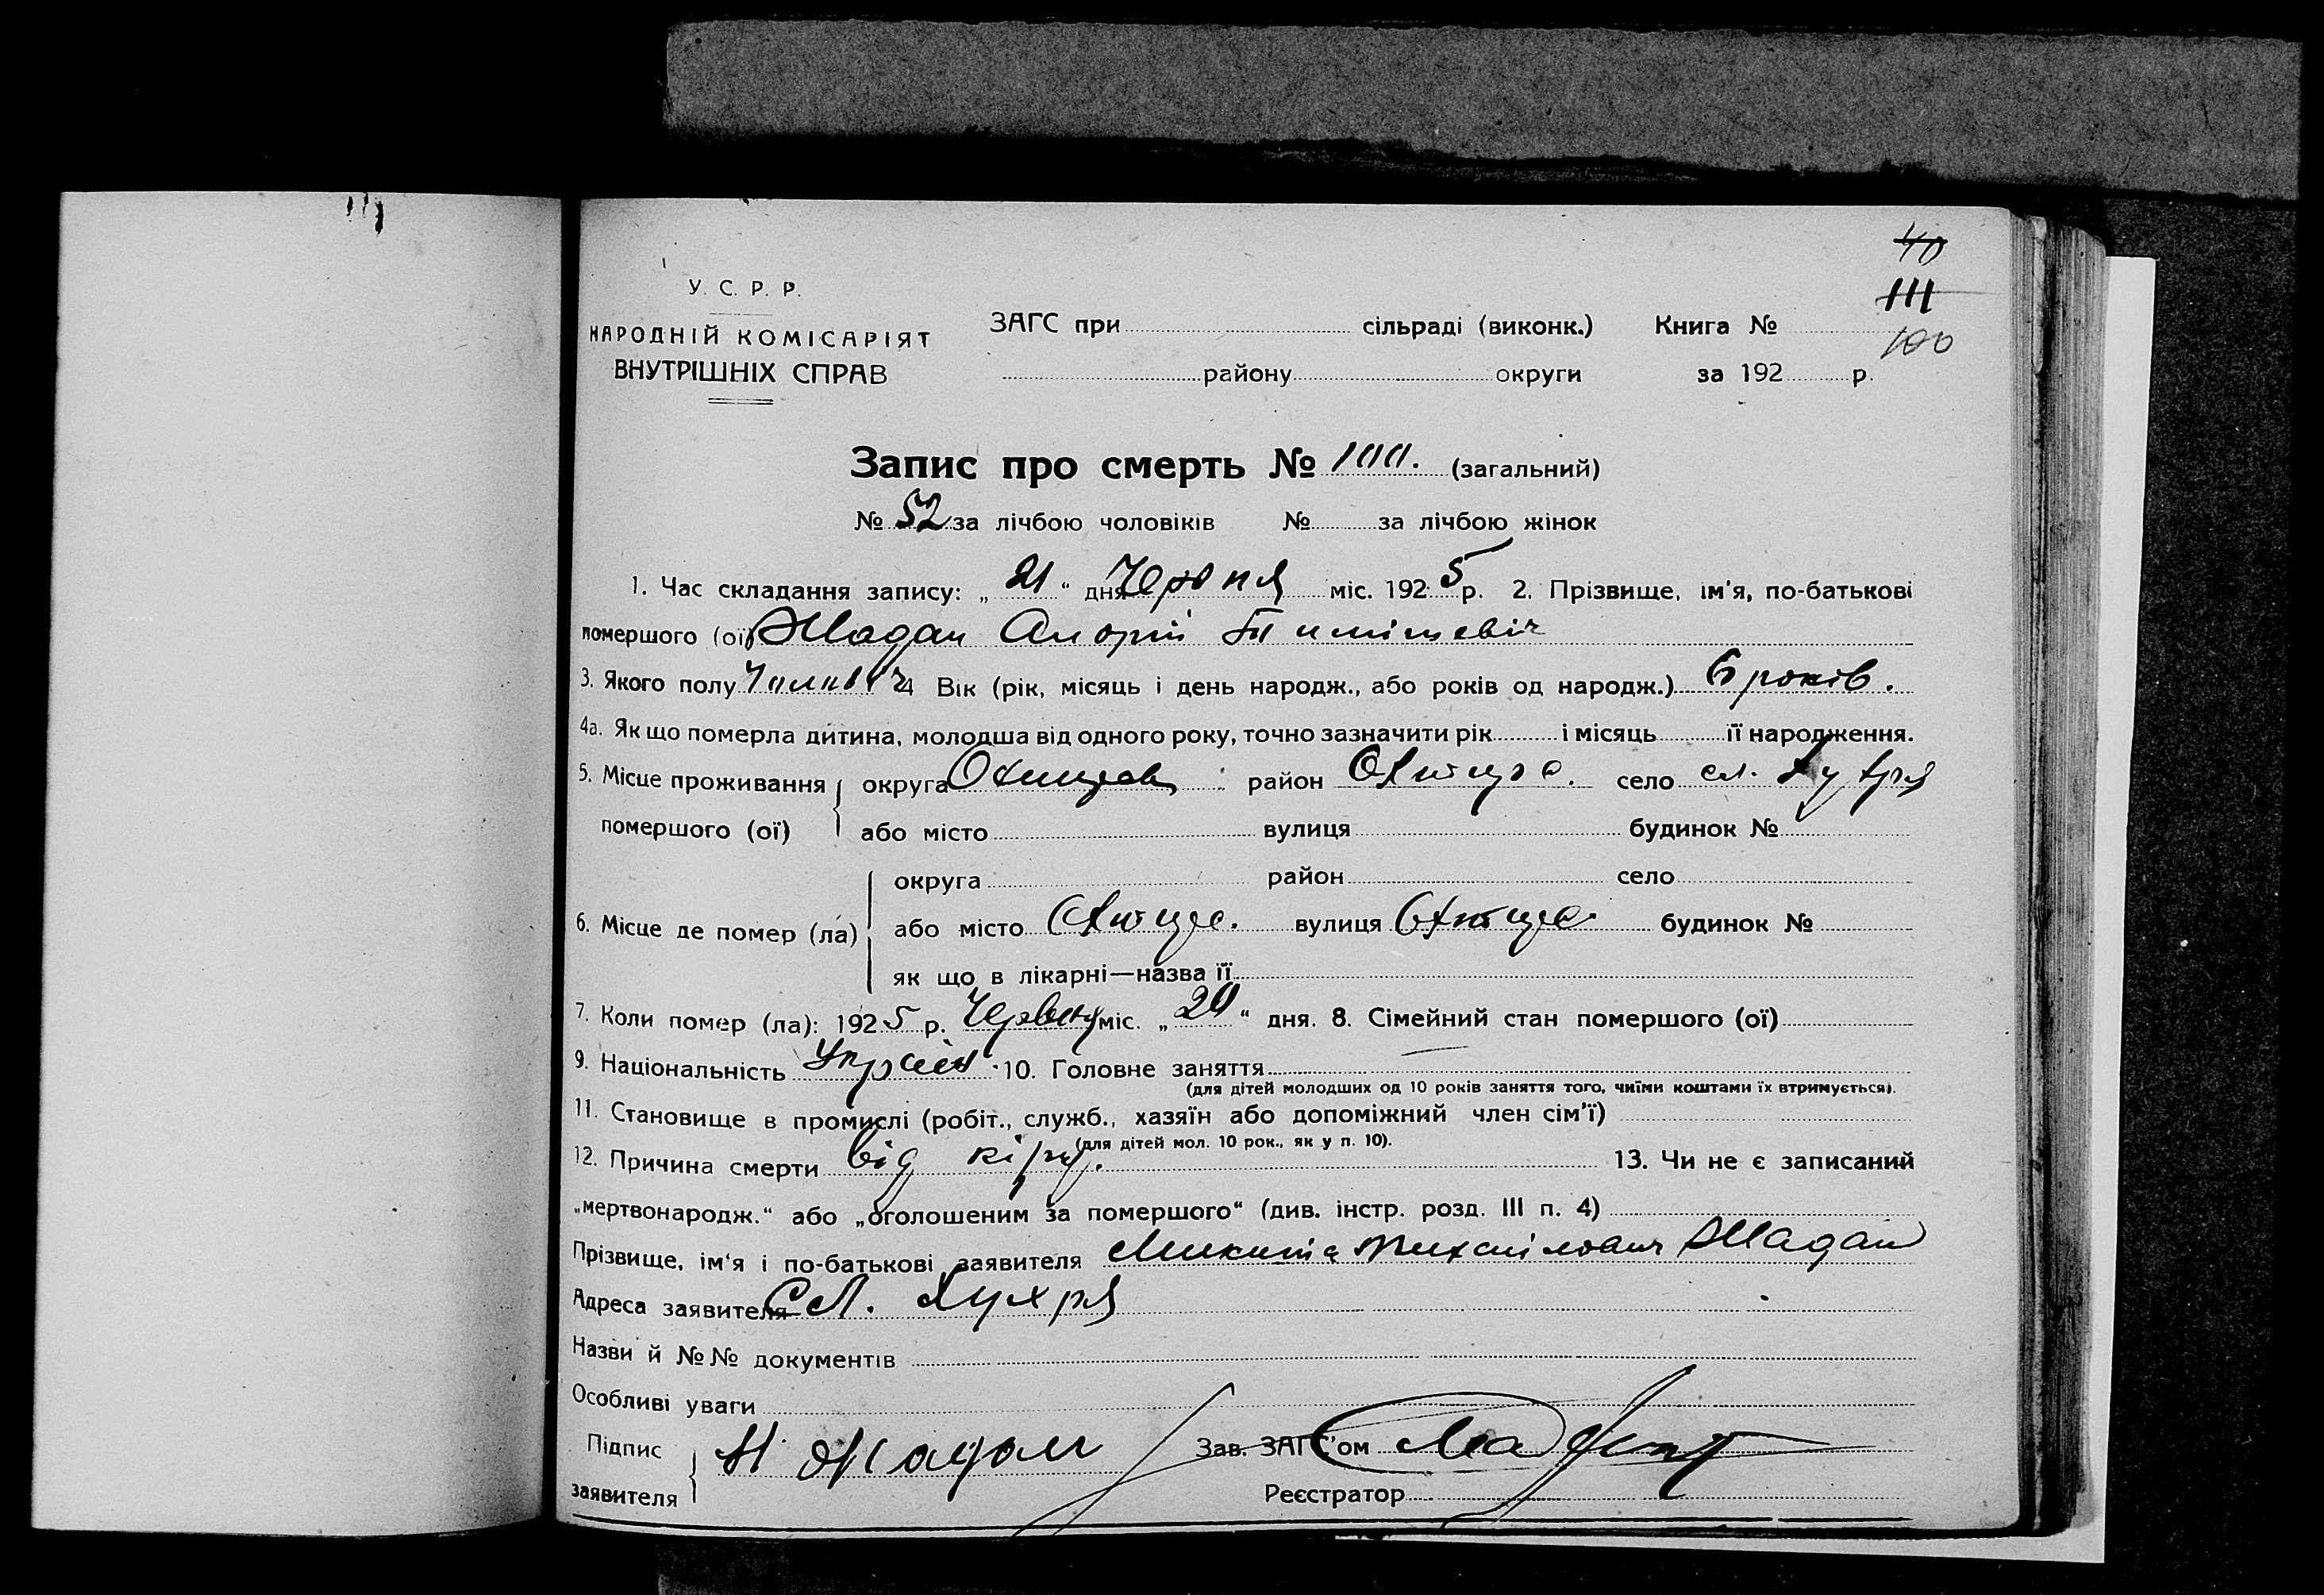 40
111
100
У. С. Р. Р.
НАРОДНІЙ КОМІСАРІЯТ
ВНУТРІШНІХ СПРАВ
ЗАГС при сільраді (виконк.) Книга №
району округи за 192 р.
Запис про смерть № 100. (загальний)
№ 52 за лічбою чоловіків № за лічбою жінок
1. Час складання запису: „21“ дня Червня міс. 1925 р. 2. Прізвище, ім'я, по-батькові
помершого (ої) Жадан
3. Якого полу Чоловіч 4 Вік (рік, місяць і день народж., або років од народж.) 6 років.
4а. Як що померла дитина, молодша від одного року, точно зазначити рік і місяць її народження.
5. Місце проживання округа район Охтирс. село сл. Хухря
помершого (ої) або місто вулиця будинок №
округа район село
6. Місце де помер (ла) або місто вулиця будинок №
як що в лікарні—назва її
7. Коли помер (ла): 1925 р. Червня міс. „20“ дня. 8. Сімейний стан помершого (ої)
9. Національність Україн. 10. Головне заняття
(для дітей молодших од 10 років заняття того, чиїми коштами їх втримується).
11. Становище в промислі (робіт., служб., хазяїн або допоміжний член сім'ї)
(для дітей мол. 10 рок., як у п. 10).
12. Причина смерти від кіру. 13. Чи не є записаний
„мертвонародж.“ або „оголошеним за помершого“ (див. інстр. розд. III п. 4)
Прізвище, ім'я і по-батькові заявителя Микита Михайлович Жадан
Адреса заявителя Сл. Хухря
Назви й №№ документів
Особливі уваги
Підпис заявителя Н Жадан Зав. ЗАГС'ом
Реєстратор